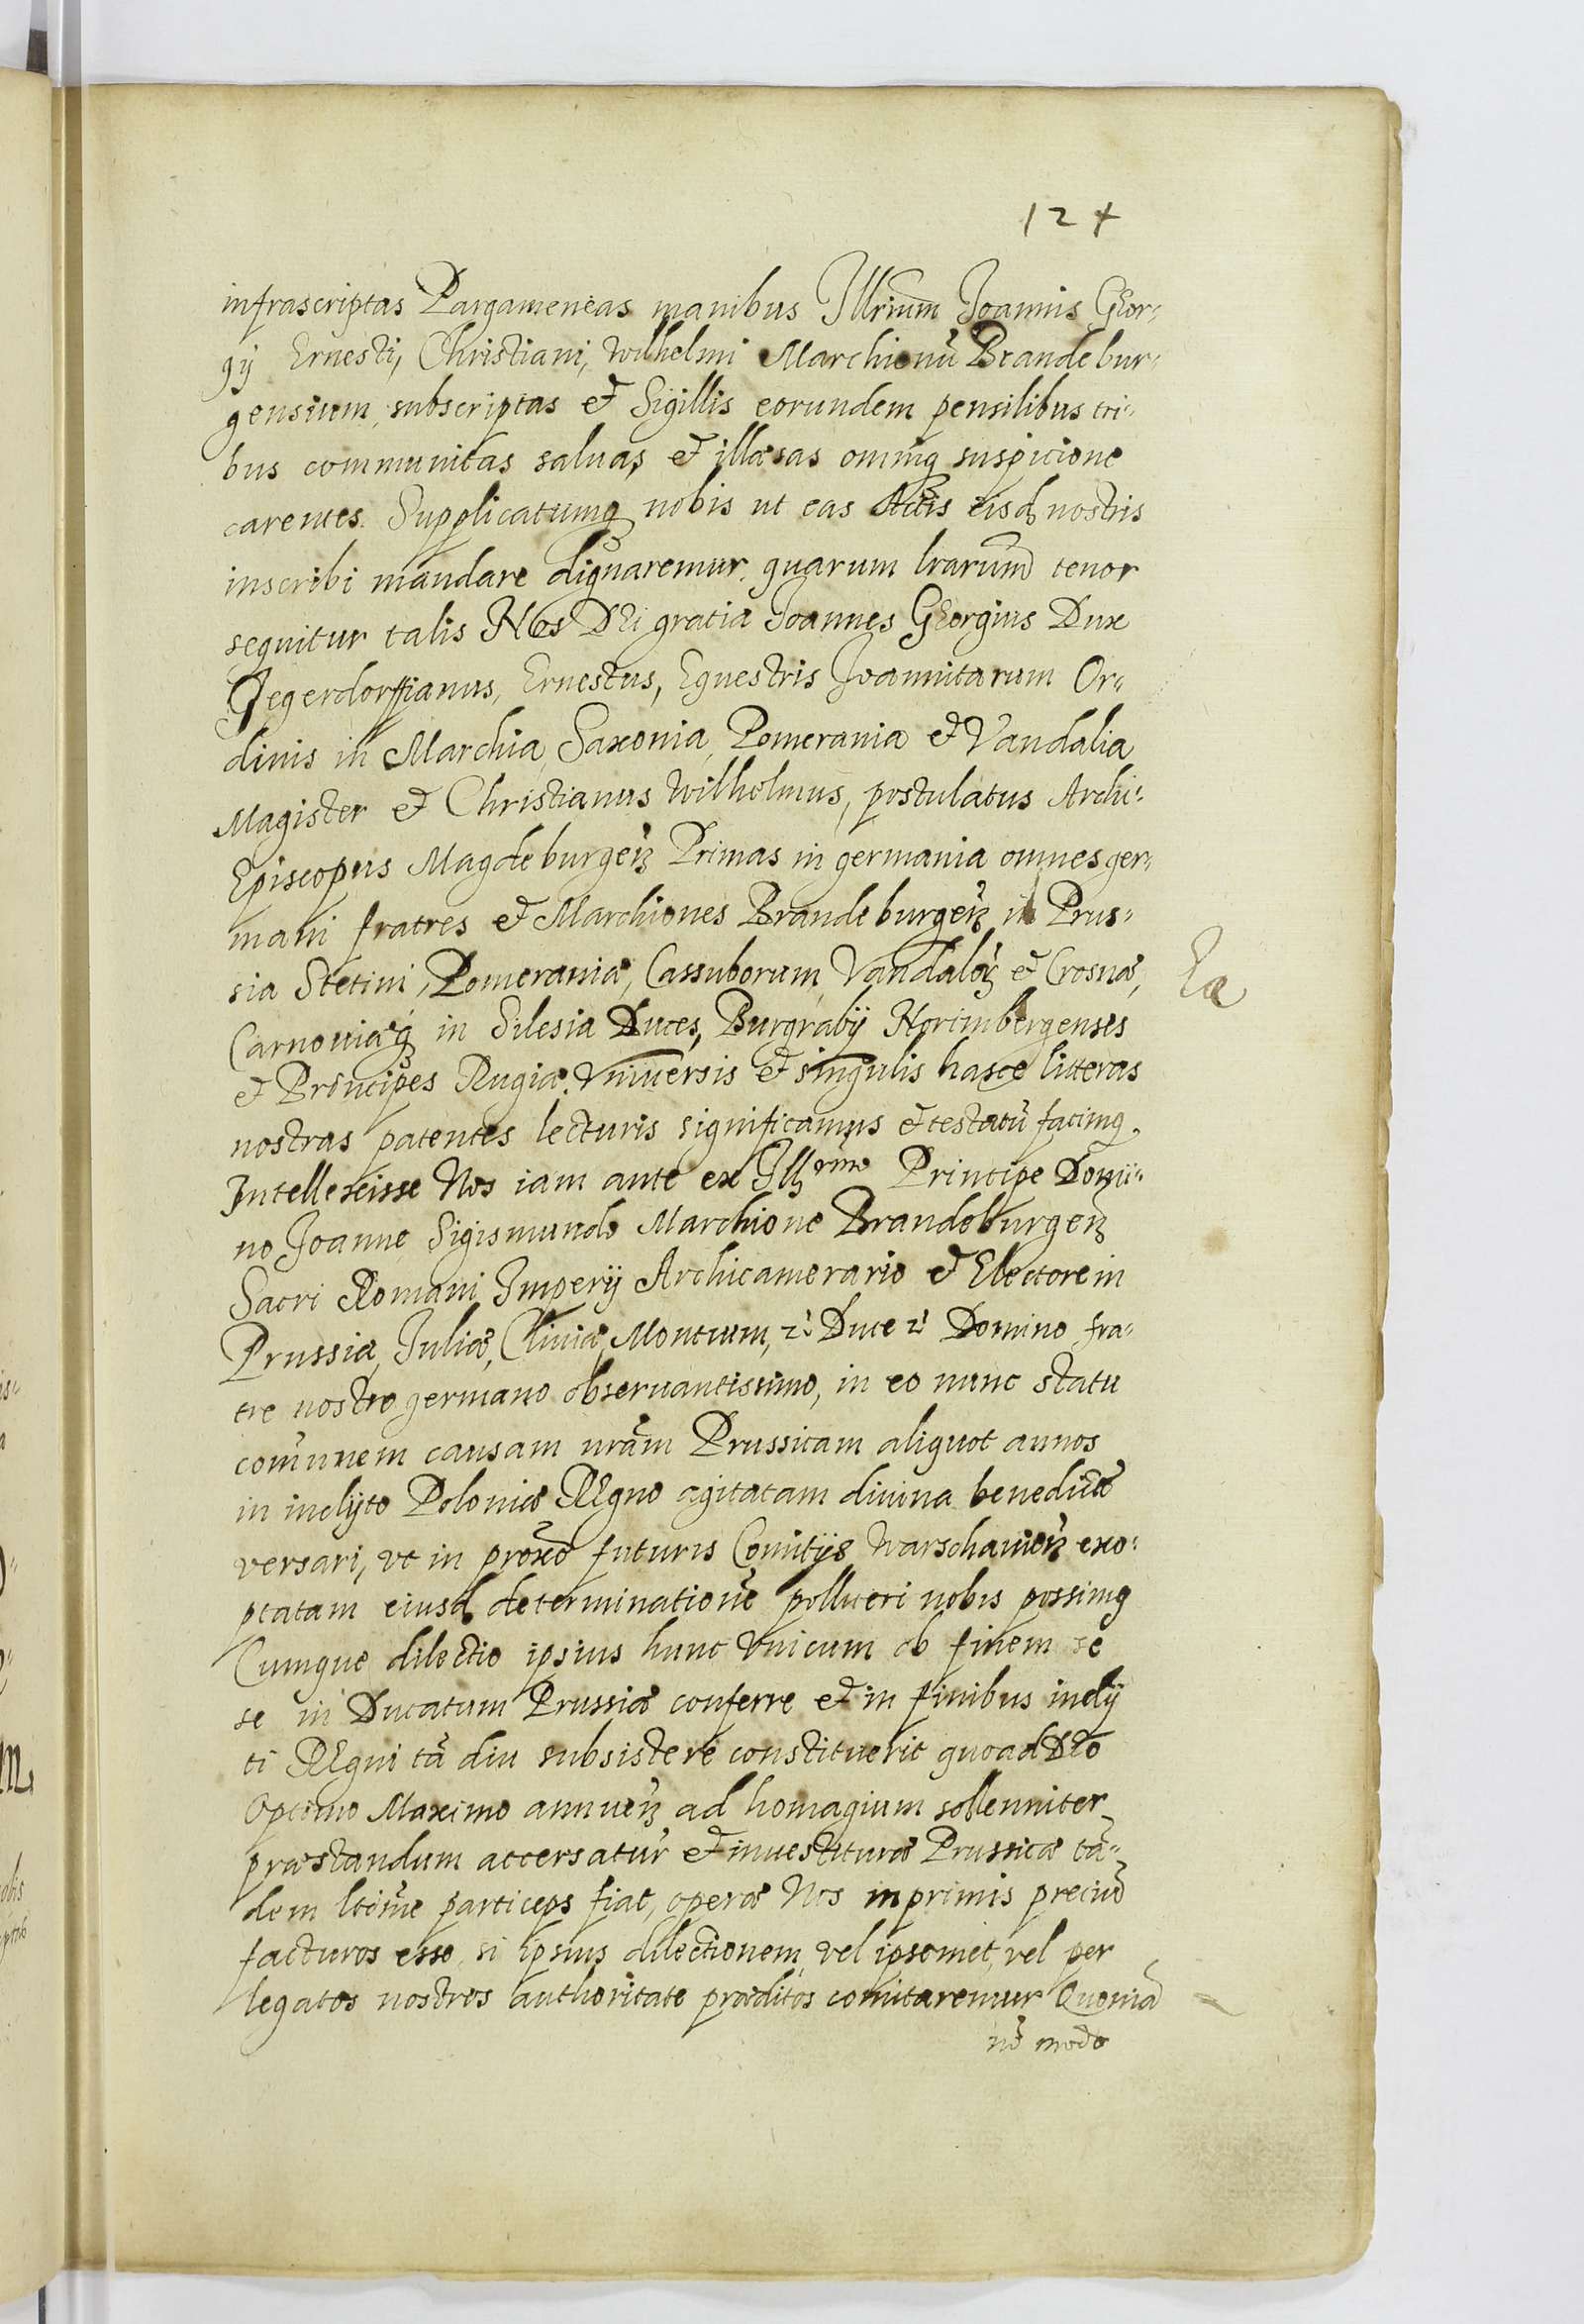 124
infrascriptas Pargameneas manibus Illrium Joannis Geor-
gij Ernesti, Christiani, Wilhelmi Marchionũ Brandebur-
gensium, subscriptas et Sigillis eorundem pensilibus tri-
bus communitas saluas, et illæsas omniq suspicione
carentes. Supplicatumq nobis ut eas Actis eisd nostris
inscribi mandare dignaremur. quarum lrarum tenor
sequitur talis Nos DEi gratia Joannes Georgius Dux
Jegerdorffianus, Ernestus, Equestris Joannitarum Or-
dinis in Marchia, Saxonia, Pomerania et Vandalia
Magister et Christianus Wilhelmus, postulatus Archi-
Episcopus Magdeburgeñ Primas in germania omnes ger-
mani fratres et Marchiones Brandeburgeñ in Prus-
sia Stetini, Pomeraniæ, Cassuborum, Vandaloꝝ et Crosnæ,
Carnouiæq in Silesia Duces, Burgrabij Norimbergenses
et Principes Rugiæ. Vniuersis et singulis hasce litteras
nostras patentes lecturis significamus et testatũ facimq.
Intellexisse Nos iam ante ex Illrmo Principe Domi-
no Joanne Sigismundo Marchione Brandeburgeñ
Sacri Romani Imperij Archicamerario et Electore in
Prussia, Juliæ, Cliuiæ, Montium, etc Duce etc Domino fra-
tre nostro germano obseruantissimo, in eo nunc statu
com̃unem causam nrãm Prussicam aliquot annos
in inclyto Poloniæ REgno agitatam diuina benedictõe
versari, vt in proxẽ futuris Comitijs Warschauieñ exo-
ptatam eiusd determinationẽ polliceri nobis possimq
Cumque dilectio ipsius hunc Vnicum ob finem se
se in Ducatum Prussiæ conferre et in finibus incly
ti REgni tã diu subsistere constituerit quoad DEo
Optimo Maximo annueñ ad homagium sollenniter
præstandum accersatur et inuestituræ Prussicæ tã-
dem ltime particeps fiat, operæ Nos inprimis preciũ
facturos esse, si ipsius dilectionem, vel ipsemet, vel per
legatos nostros authoritate præditos comitaremur Quoniã
nõ modo
Ea